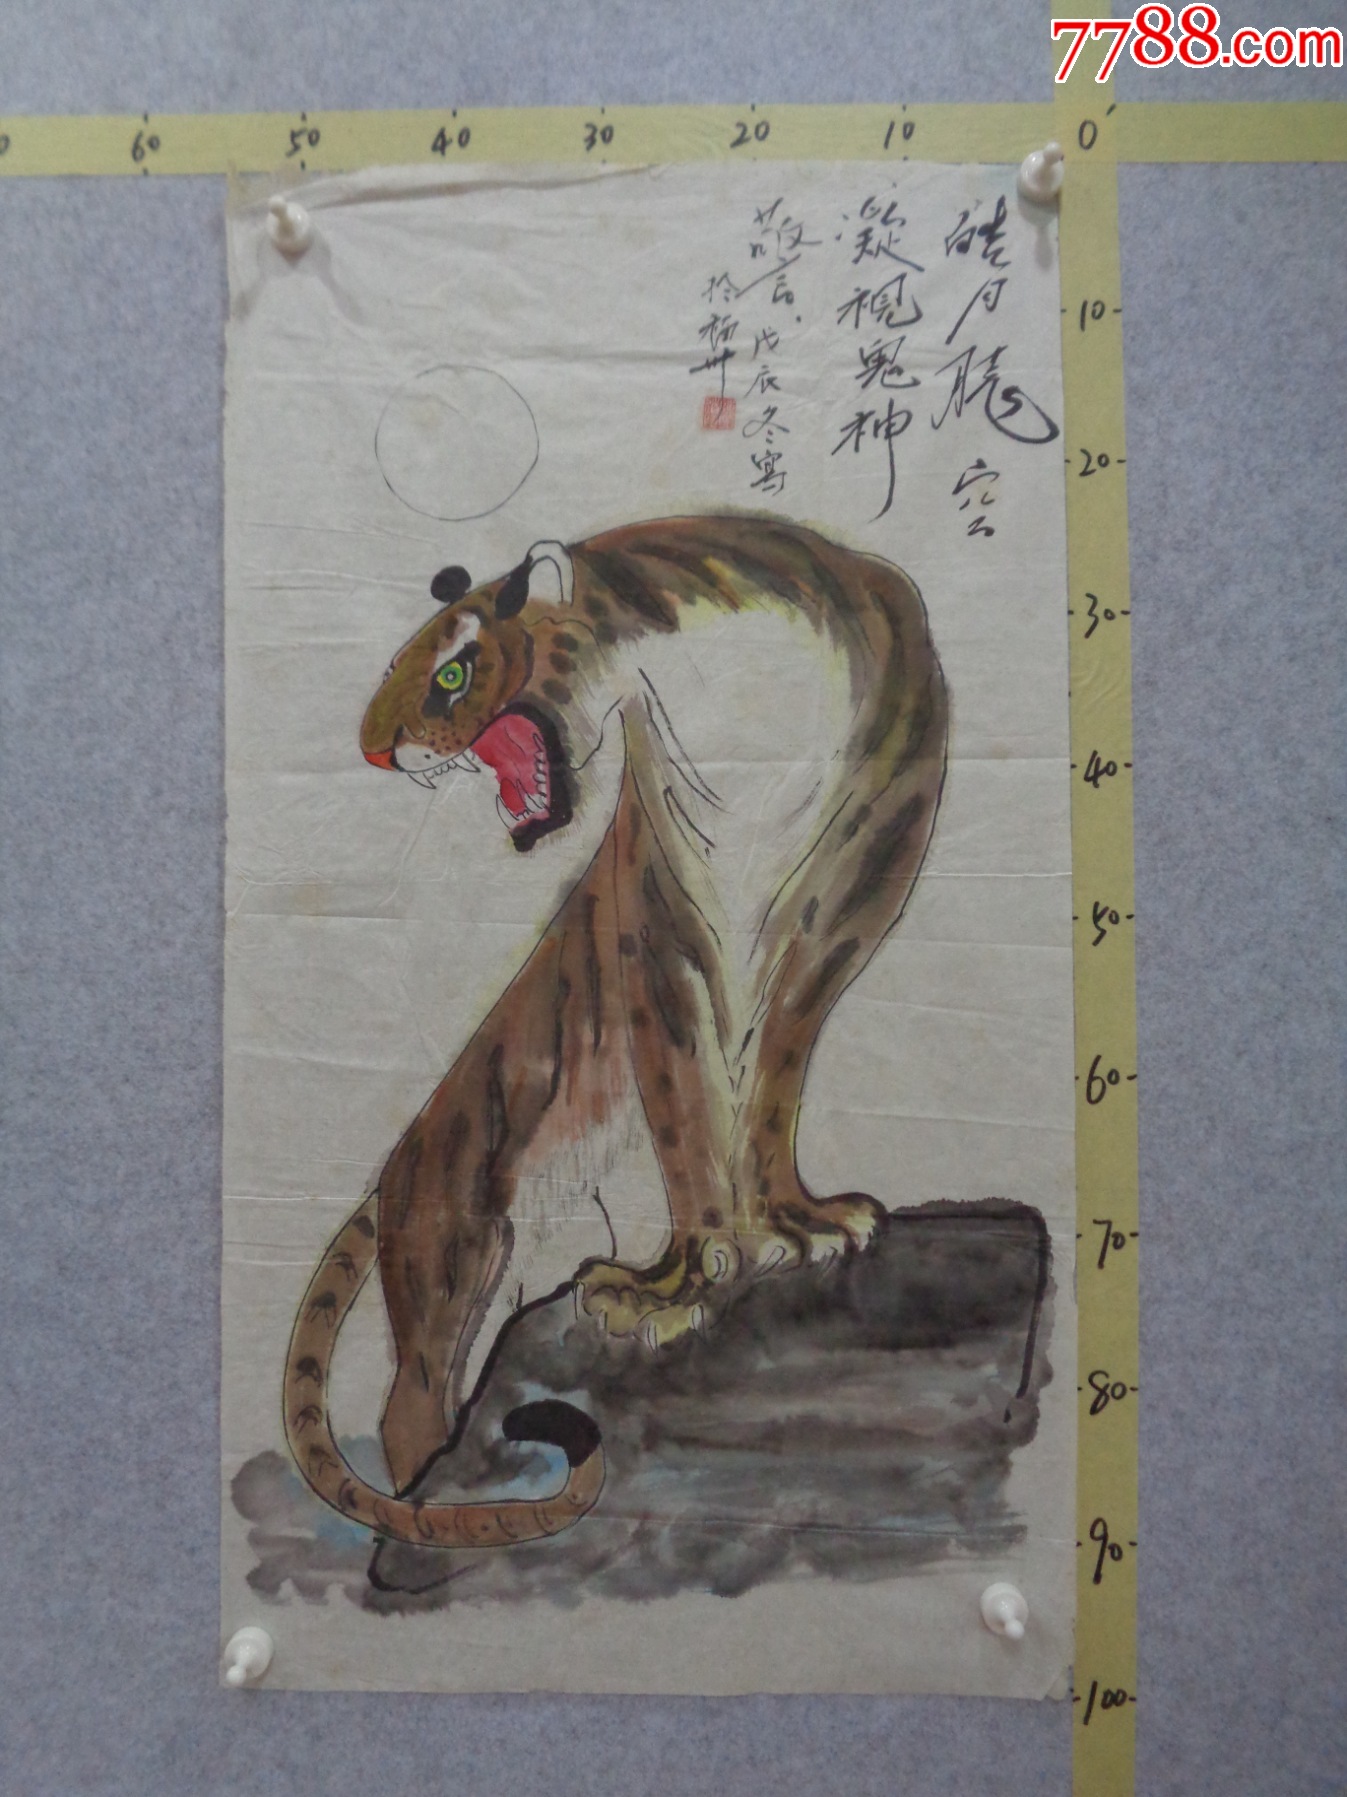 7788.com
60
50
40
30
20
10
0
皓月
空
凝視鬼神
戊辰冬寫
於福州
10
20
30
40
50
60
70
80
90
100